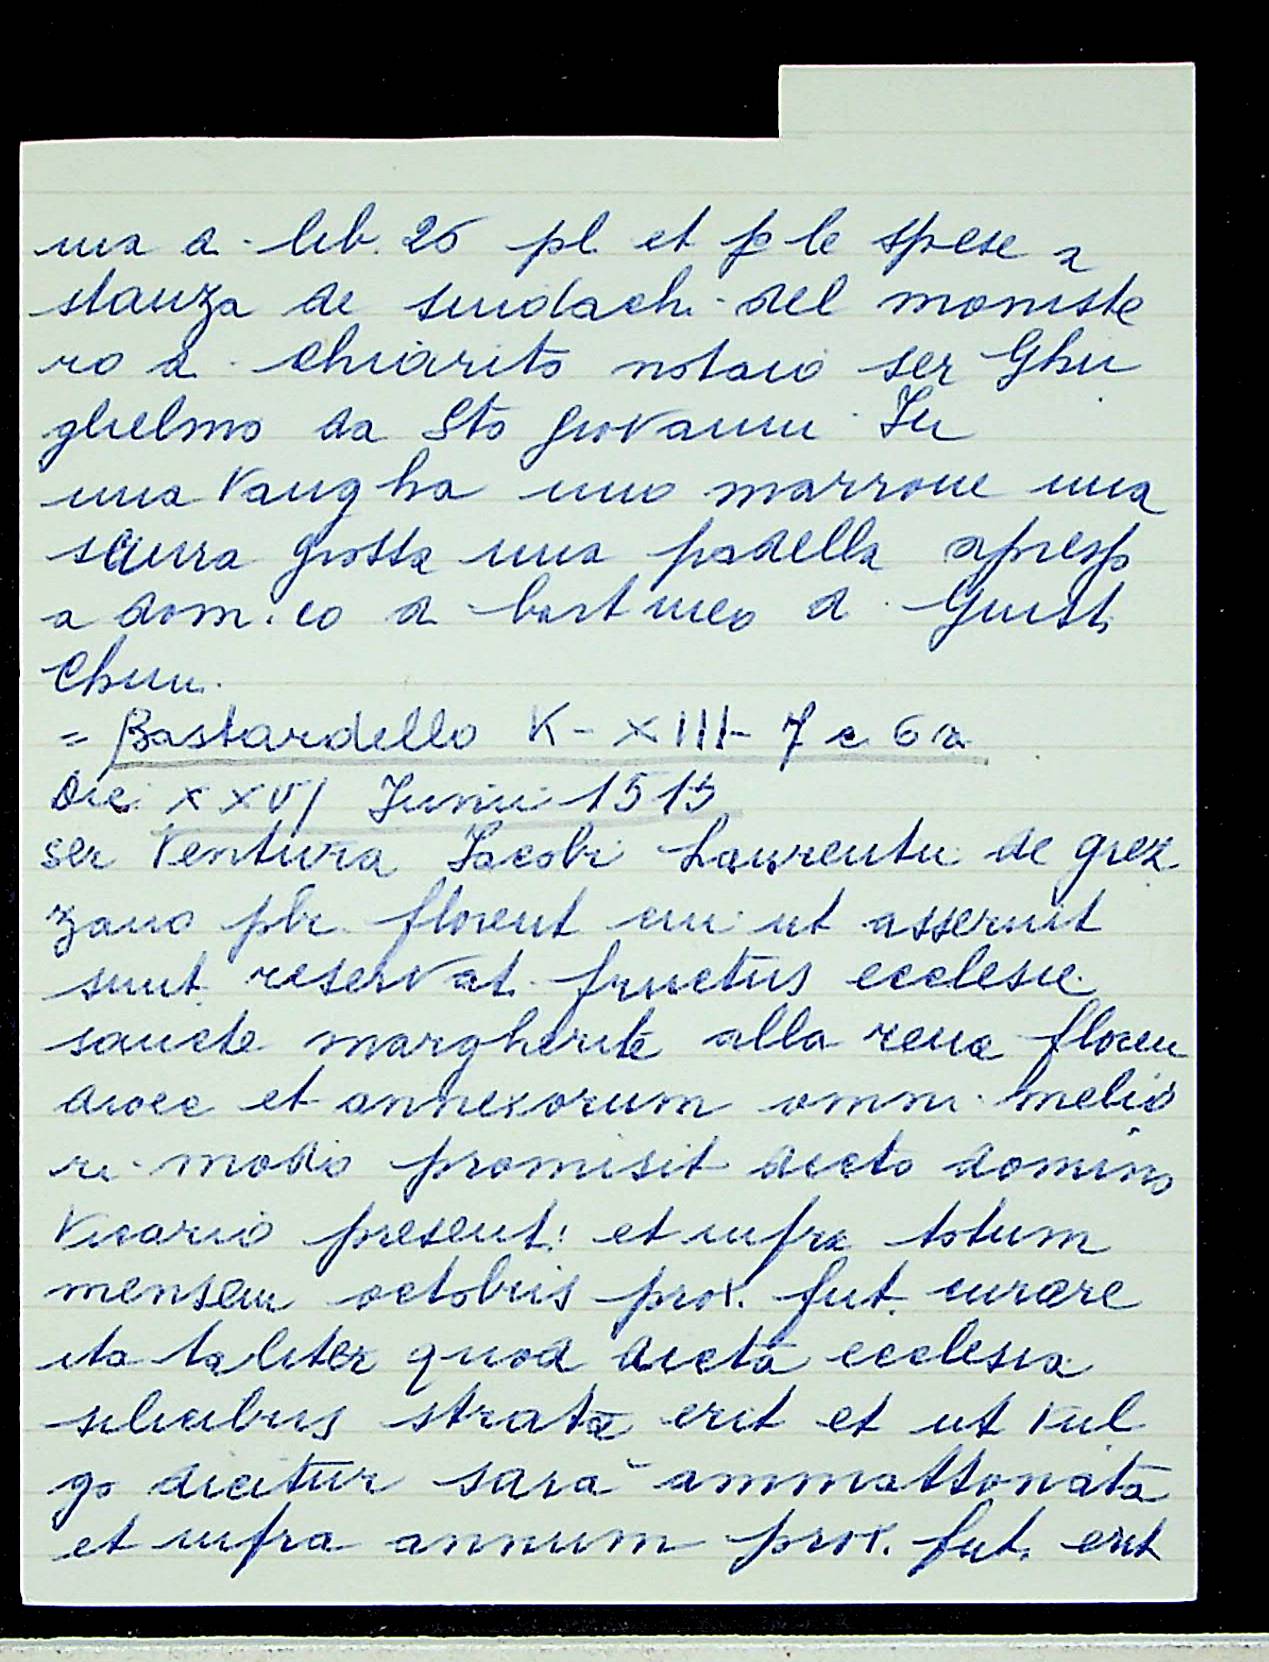 una a lib. 26 pl. et p le spese a
stanza de sindachi del moniste
ro di Chiarito notaio ser Ghu
glielmo da Sto Giovanni In
una vangha uno marrone una
scurra grossa una padella apresso
a dom.co d bartmeo d Giusti
Chuni.
= Bastardello K - XIII - 7 c 6a
Die XXVI Junii 1515
ser Ventura Jacobi Laurentii de grez
zano pbr. florent cui ut asseruit
sunt reservat. fructus ecclesie
sancte margherite alla rena floren
dioec et annexorum omni melio
ri modo promisit dicto domino
Vicario present: et infra totum
mensem octobris prox. fut. curare
ita taliter quod dicta ecclesia
silicibus strata erit et ut vul
go dicitur sarà ammattonata
et infra annum prox. fut. erit